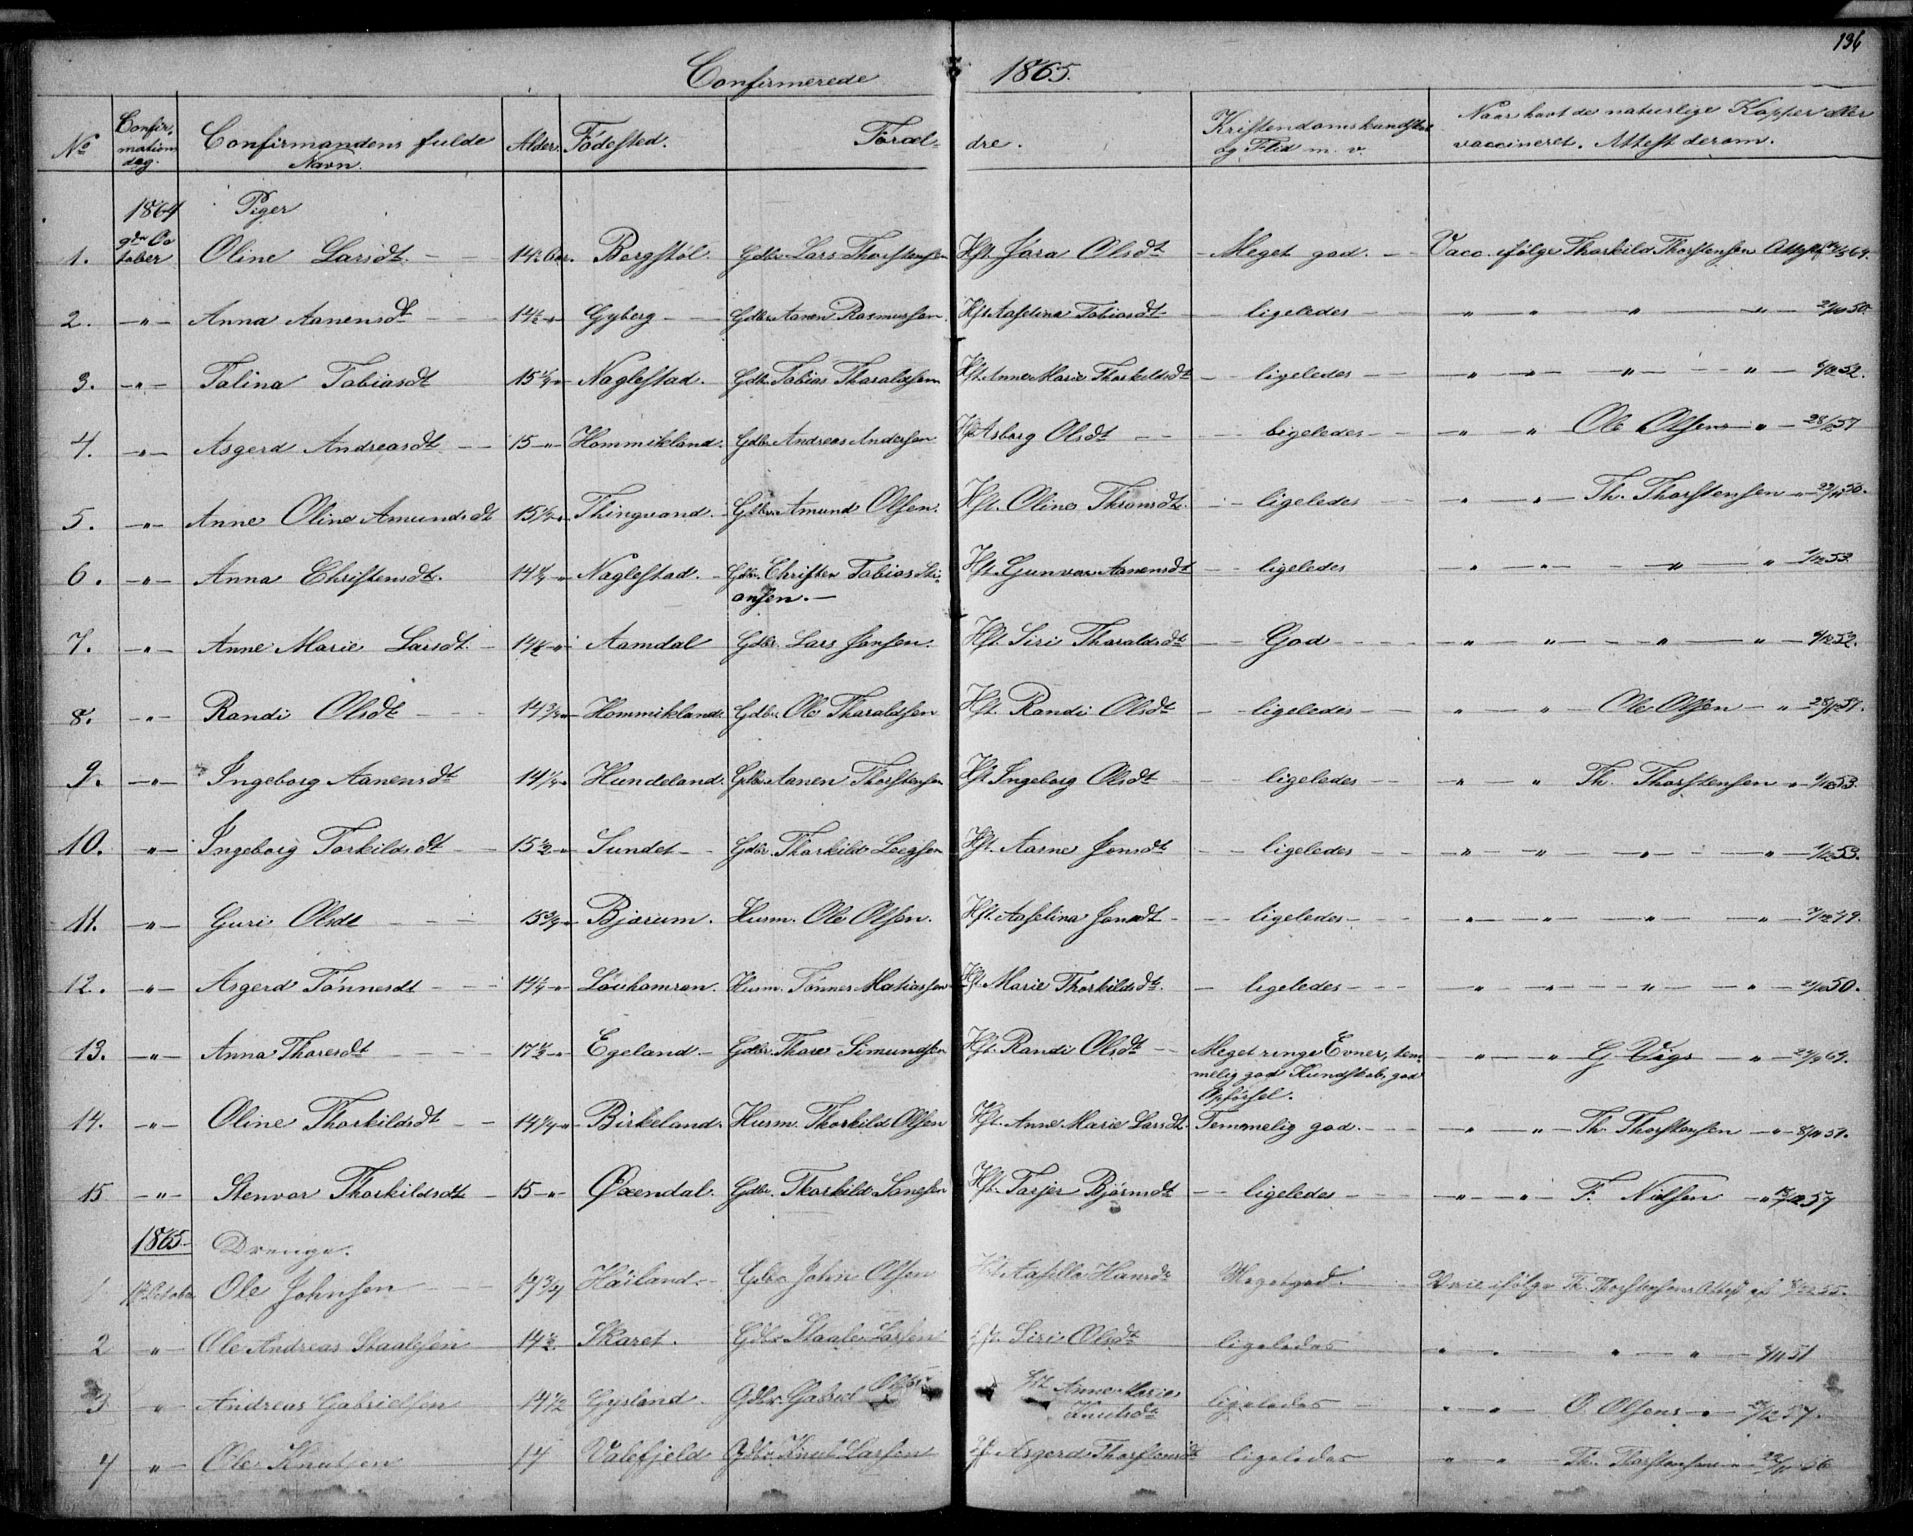 136
Confirmerede 1865.
No Confirmations dag. Confirmandens fulde Navn. Alder. Födested. Forældre. Kristendomskundskab og Flid m. v. Naar havt de naturlige Kopper eller vaccineret. Attest derom.
1864 Piger
1. 9de October Oline Larsdt. 14 Bergstöl. Gdbr. Lars Thorstensen Hst. Jora Olsdt Meget god. Vacc. ifølge Thorkild Thorstensen Attest
2. " Anna Aanensdt 14½ " Gyberg Gdbr. Aanen Rasmussen Hst. Aaselina Tobiasdt ligeledes " " " " 50.
3. " Talina Tobiasdt 15 " Naglestad. Gdbr. Tobias Tharaldsen Hst. Anne Marie Thorkildsdt ligeledes " " " " 52.
4. " Asgerd Andreasdt 15 " Hommikland. Gdbr. Andreas Andersen Hst. Asborg Olsdt ligeledes " " Ole Olsens " 57
5. " Anne Oline Amundsdt 15 " Thingvand. Gdbr. Amund Olsen. Hst. Oline Thronsdt. ligeledes " " Th. Thorstensen " 50.
6. " Anna Christensdt. 14 " Naglestad. Gdbr. Christen Tobias
ansen. Hst. Gunvor Aanensdt ligeledes " " " " 53.
7. " Anne Marie Larsdt. 14 " Aamdal Gdbr. Lars Jonsen. Hst. Siri Tharaldsdt God " " " " 52.
8. " Randi Olsdt 14 3/4 " Hommikland. Gdbr. Ole Tharaldsen Hst. Randi Olsdt ligeledes " " Ole Olsen " 57.
9. " Ingeborg Aanensdt 14 " Hundeland. Gdbr. Aanen Thorstensen Hst. Ingeborg Olsdt ligeledes " " Th. Thorstensen " 53.
10. " Ingeborg Torkildsdt 15 " Sundet Gdbr. Thorkild Hst. Aasne Jonsdt ligeledes " " " " 53.
11. " Guri Olsdt 15 3/4 " Bjærum. Husm. Ole Olsen. Hst. Aaselina Jonsdt ligeledes " " " " 49.
12. " Asgerd Tönnesdt 14 " Husm. Tönnes Matiassen Hst. Marie Thorkildsdt. ligeledes " " " " 50.
13. " Anna Thoresdt 17 " Egeland. Gdbr. Thore Simundsen Hst. Randi Olsdt Meget ringe Evner, tem-
melig god Kundskab, god
Opførsel. " " G " 64.
14. " Oline Thorkildsdt 14 " Birkeland. Husm. Thorkild Olsen Hst. Anne Marie Larsdt. Temmelig god. " " Th. Thorstensen " 51.
15 " Stenvor Thorkildsdt 15 " Öxendal. Gdbr. Thorkild Hst. Tarjer Björnsdt ligeledes " " F. Nielsen " 57
1865 Drenge.
1 October Ole Johnsen 14 3/4 Häiland. Gdbr. John Olsen Hst. Aasille Hansdt Meget god. Vacc. ifølge Th. Thorstensens Attest af 55.
2 " Ole Andreas Staalesen 14½ Skaret. Gdbr. Staale Larsen Hst. Siri Olsdt ligeledes " " " " 8/11 51
3 " Andreas Gabrielsen 14½ Gysland. Gdbr. Gabriel Olsen Hst. Anne Marie
Knutsdt ligeledes " " O. Olsens " 57.
4 " Ole Knutsen 14 Valefjeld Gdbr. Knut Larsen Hst. Asgerd Thorstensdt ligeledes " " Th. Thorstensen " 56